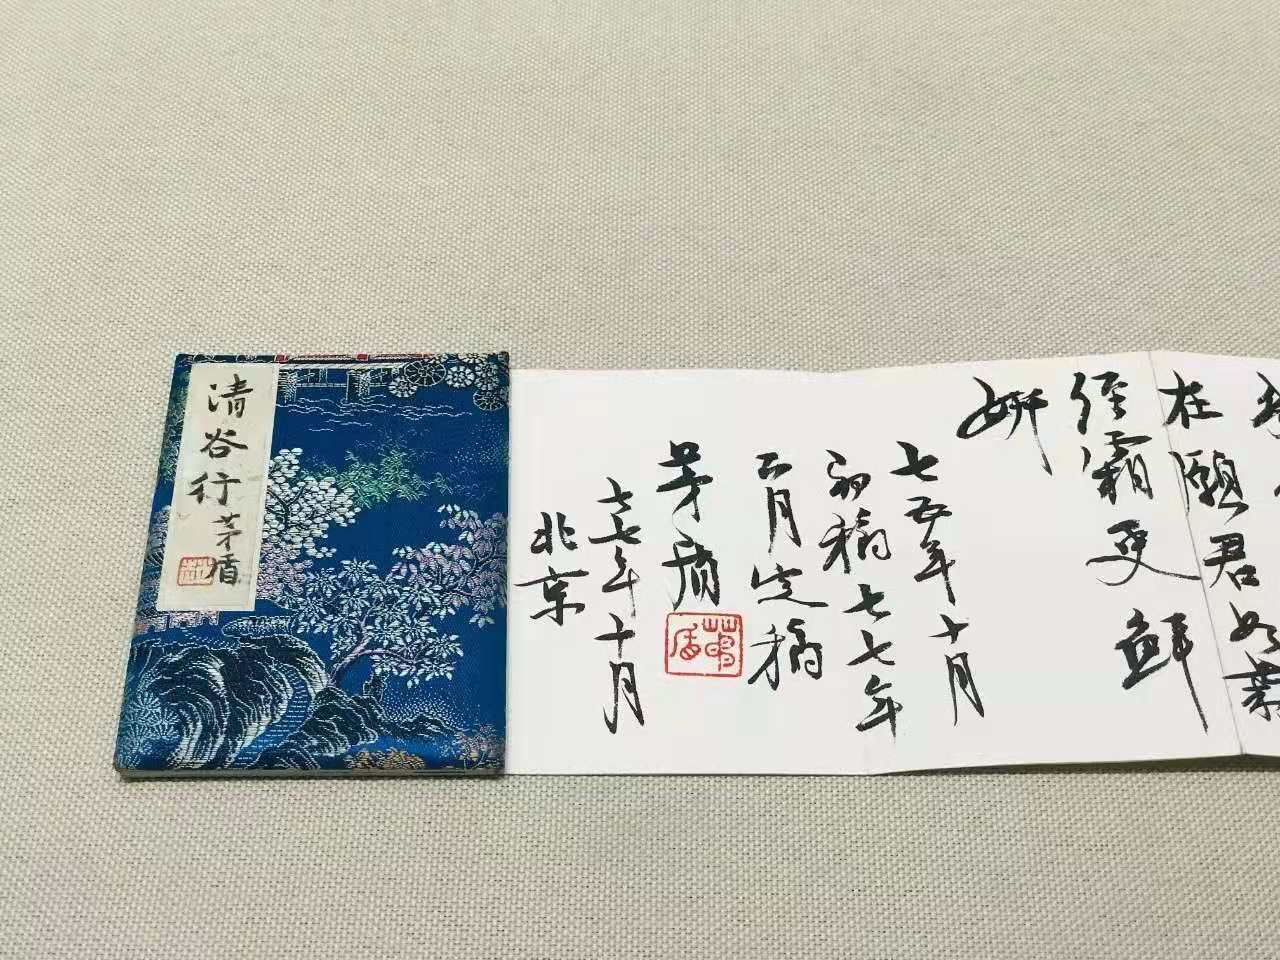 清谷行
茅盾
在願君如葉
经霜更鲜
妍
七五年十月
初稿七七年
二月定稿
茅盾
茅盾
七七年十月
北京